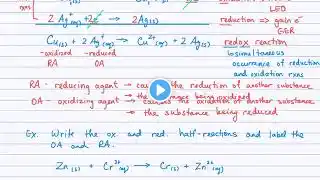 LEO
2 Ag⁺(aq) + 2e⁻ → 2Ag(s) reduction → gain e⁻
GER
Cu(s) + 2 Ag⁺(aq) → Cu²⁺(aq) + 2 Ag(s) redox reaction
-oxidized -reduced simultaneous
RA OA occurrence of reduction
and oxidation rxns
RA - reducing agent → causes the reduction of another substance
the substance being oxidized
OA - oxidizing agent → causes the oxidation of another substance
the substance being reduced
Ex. Write the ox. and red. half-reactions and label the
OA and RA.
Zn(s) + Cr²⁺(aq) → Cr(s) + Zn²⁺(aq)